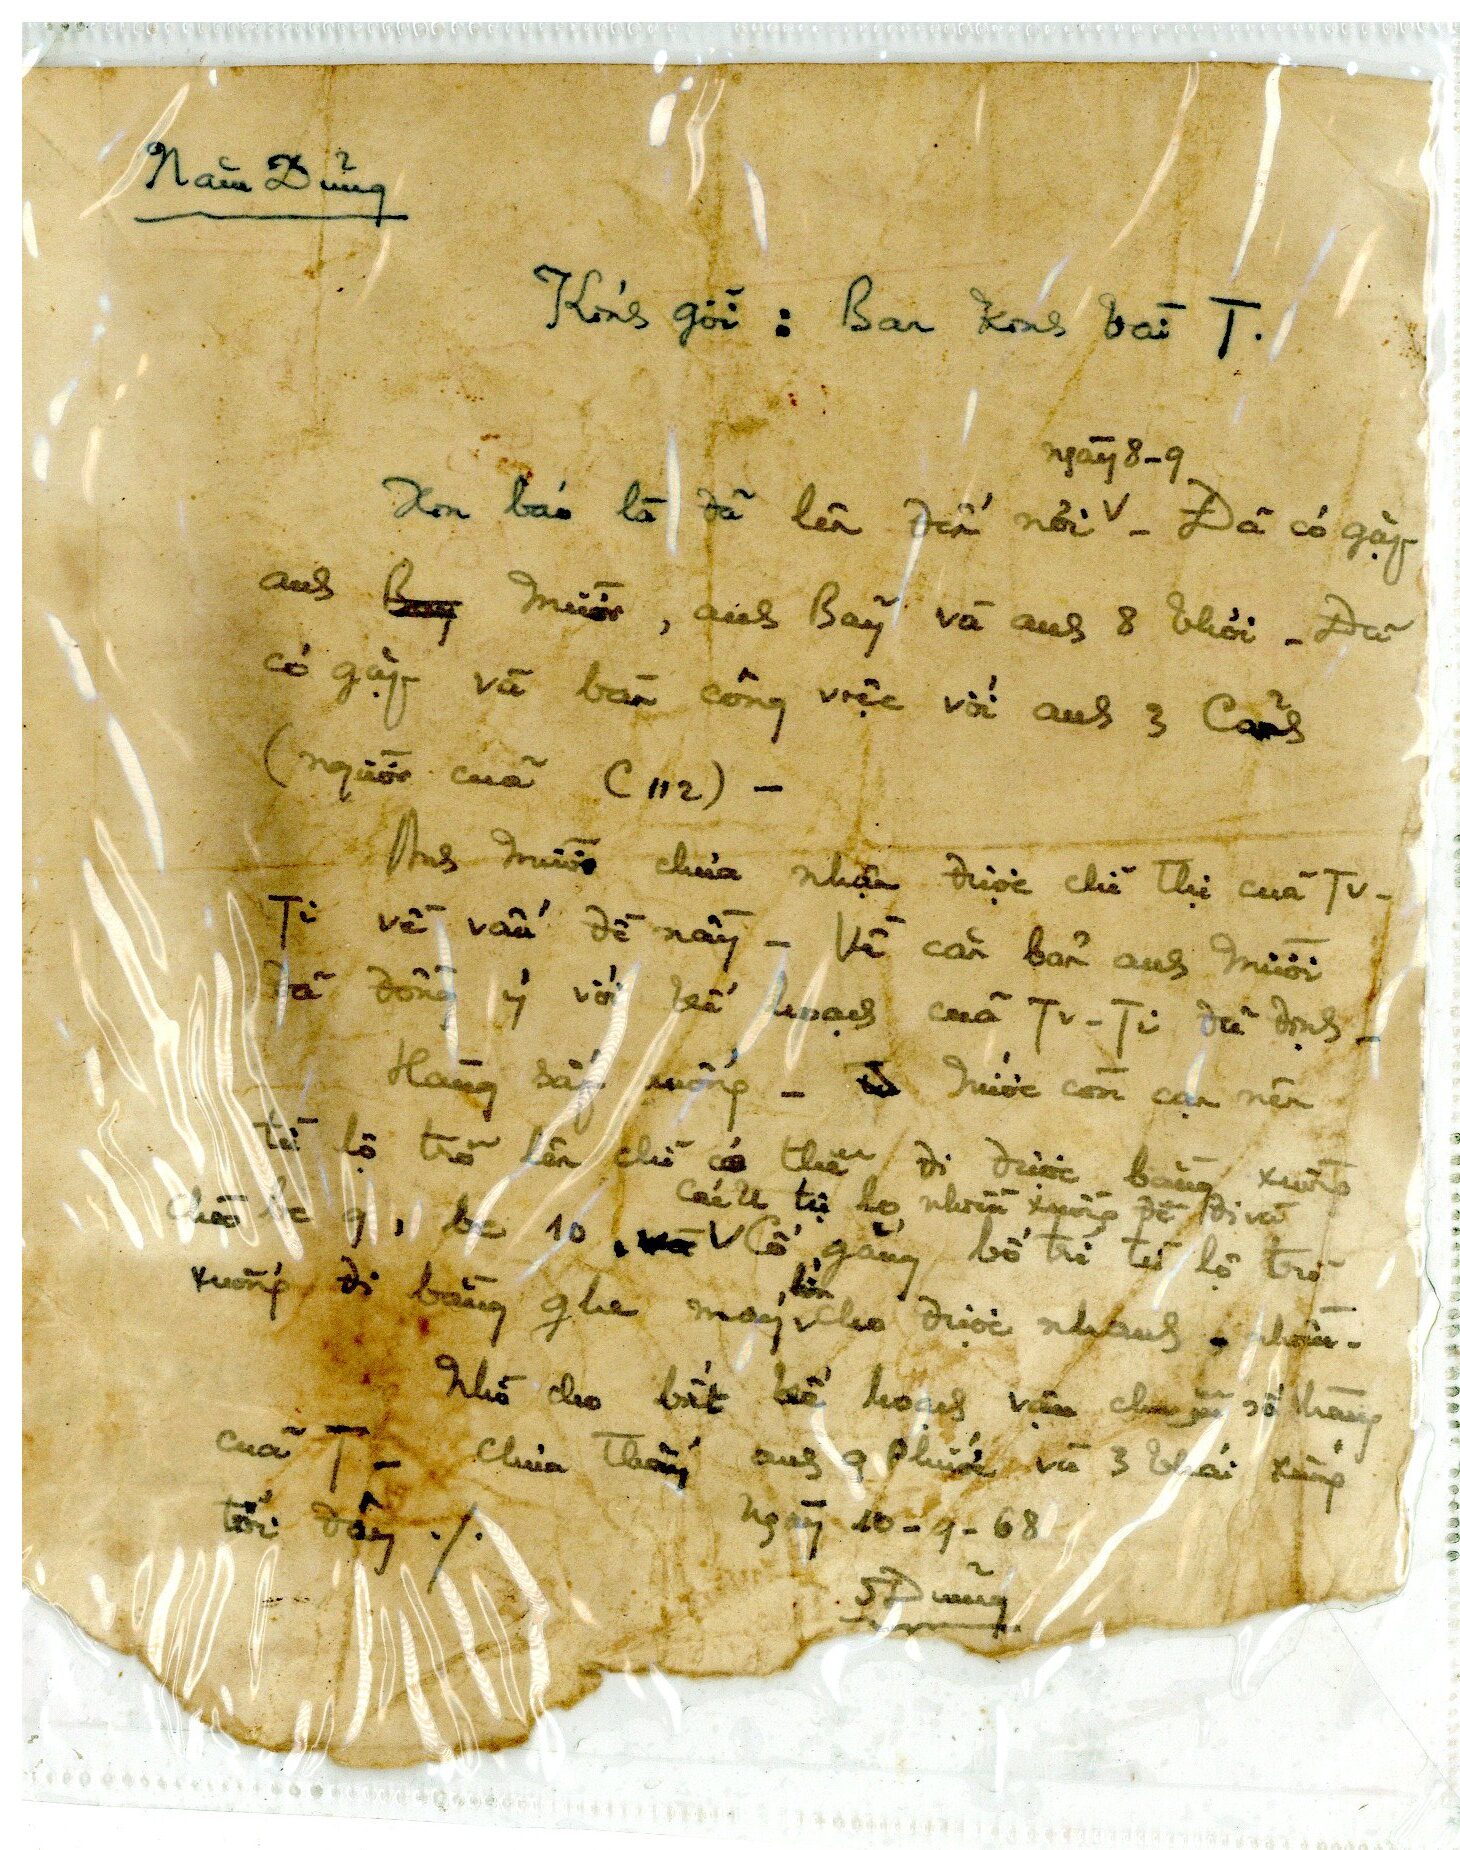 Năm Dũng
Kính gởi : Ban Kinh tài T.
ngày 8-9
Xin báo là đã lên đến nơi V - Đã có gặp
anh Bảy Mười, anh Bảy và anh 8 Khởi - Đã
có gặp và bàn công việc với anh 3 Cảnh
(người của C 112) -
Anh Mười chưa nhận được chỉ thị của TV-
Ti về vấn đề nầy - Về căn bản anh Mười
đã đồng ý với kế hoạch của TV-Ti dự định -
Hàng sắp xuống - Nước còn cạn nên
từ lộ trở lên chỉ có thể đi được bằng xuồng
cần tụ họ nhiều xuồng để đi và
chèo be 9, be 10, và V Cố gắng bố trí từ lộ trở
lớn
xuống đi bằng ghe máy V cho được nhanh - nhiều -
Nhớ cho biết kế hoạch vận chuyển số hàng
của T - Chưa thấy anh 9 Phước và 3 Khái xuống
tới đây ./.
Ngày 10-9-68
5 Dũng